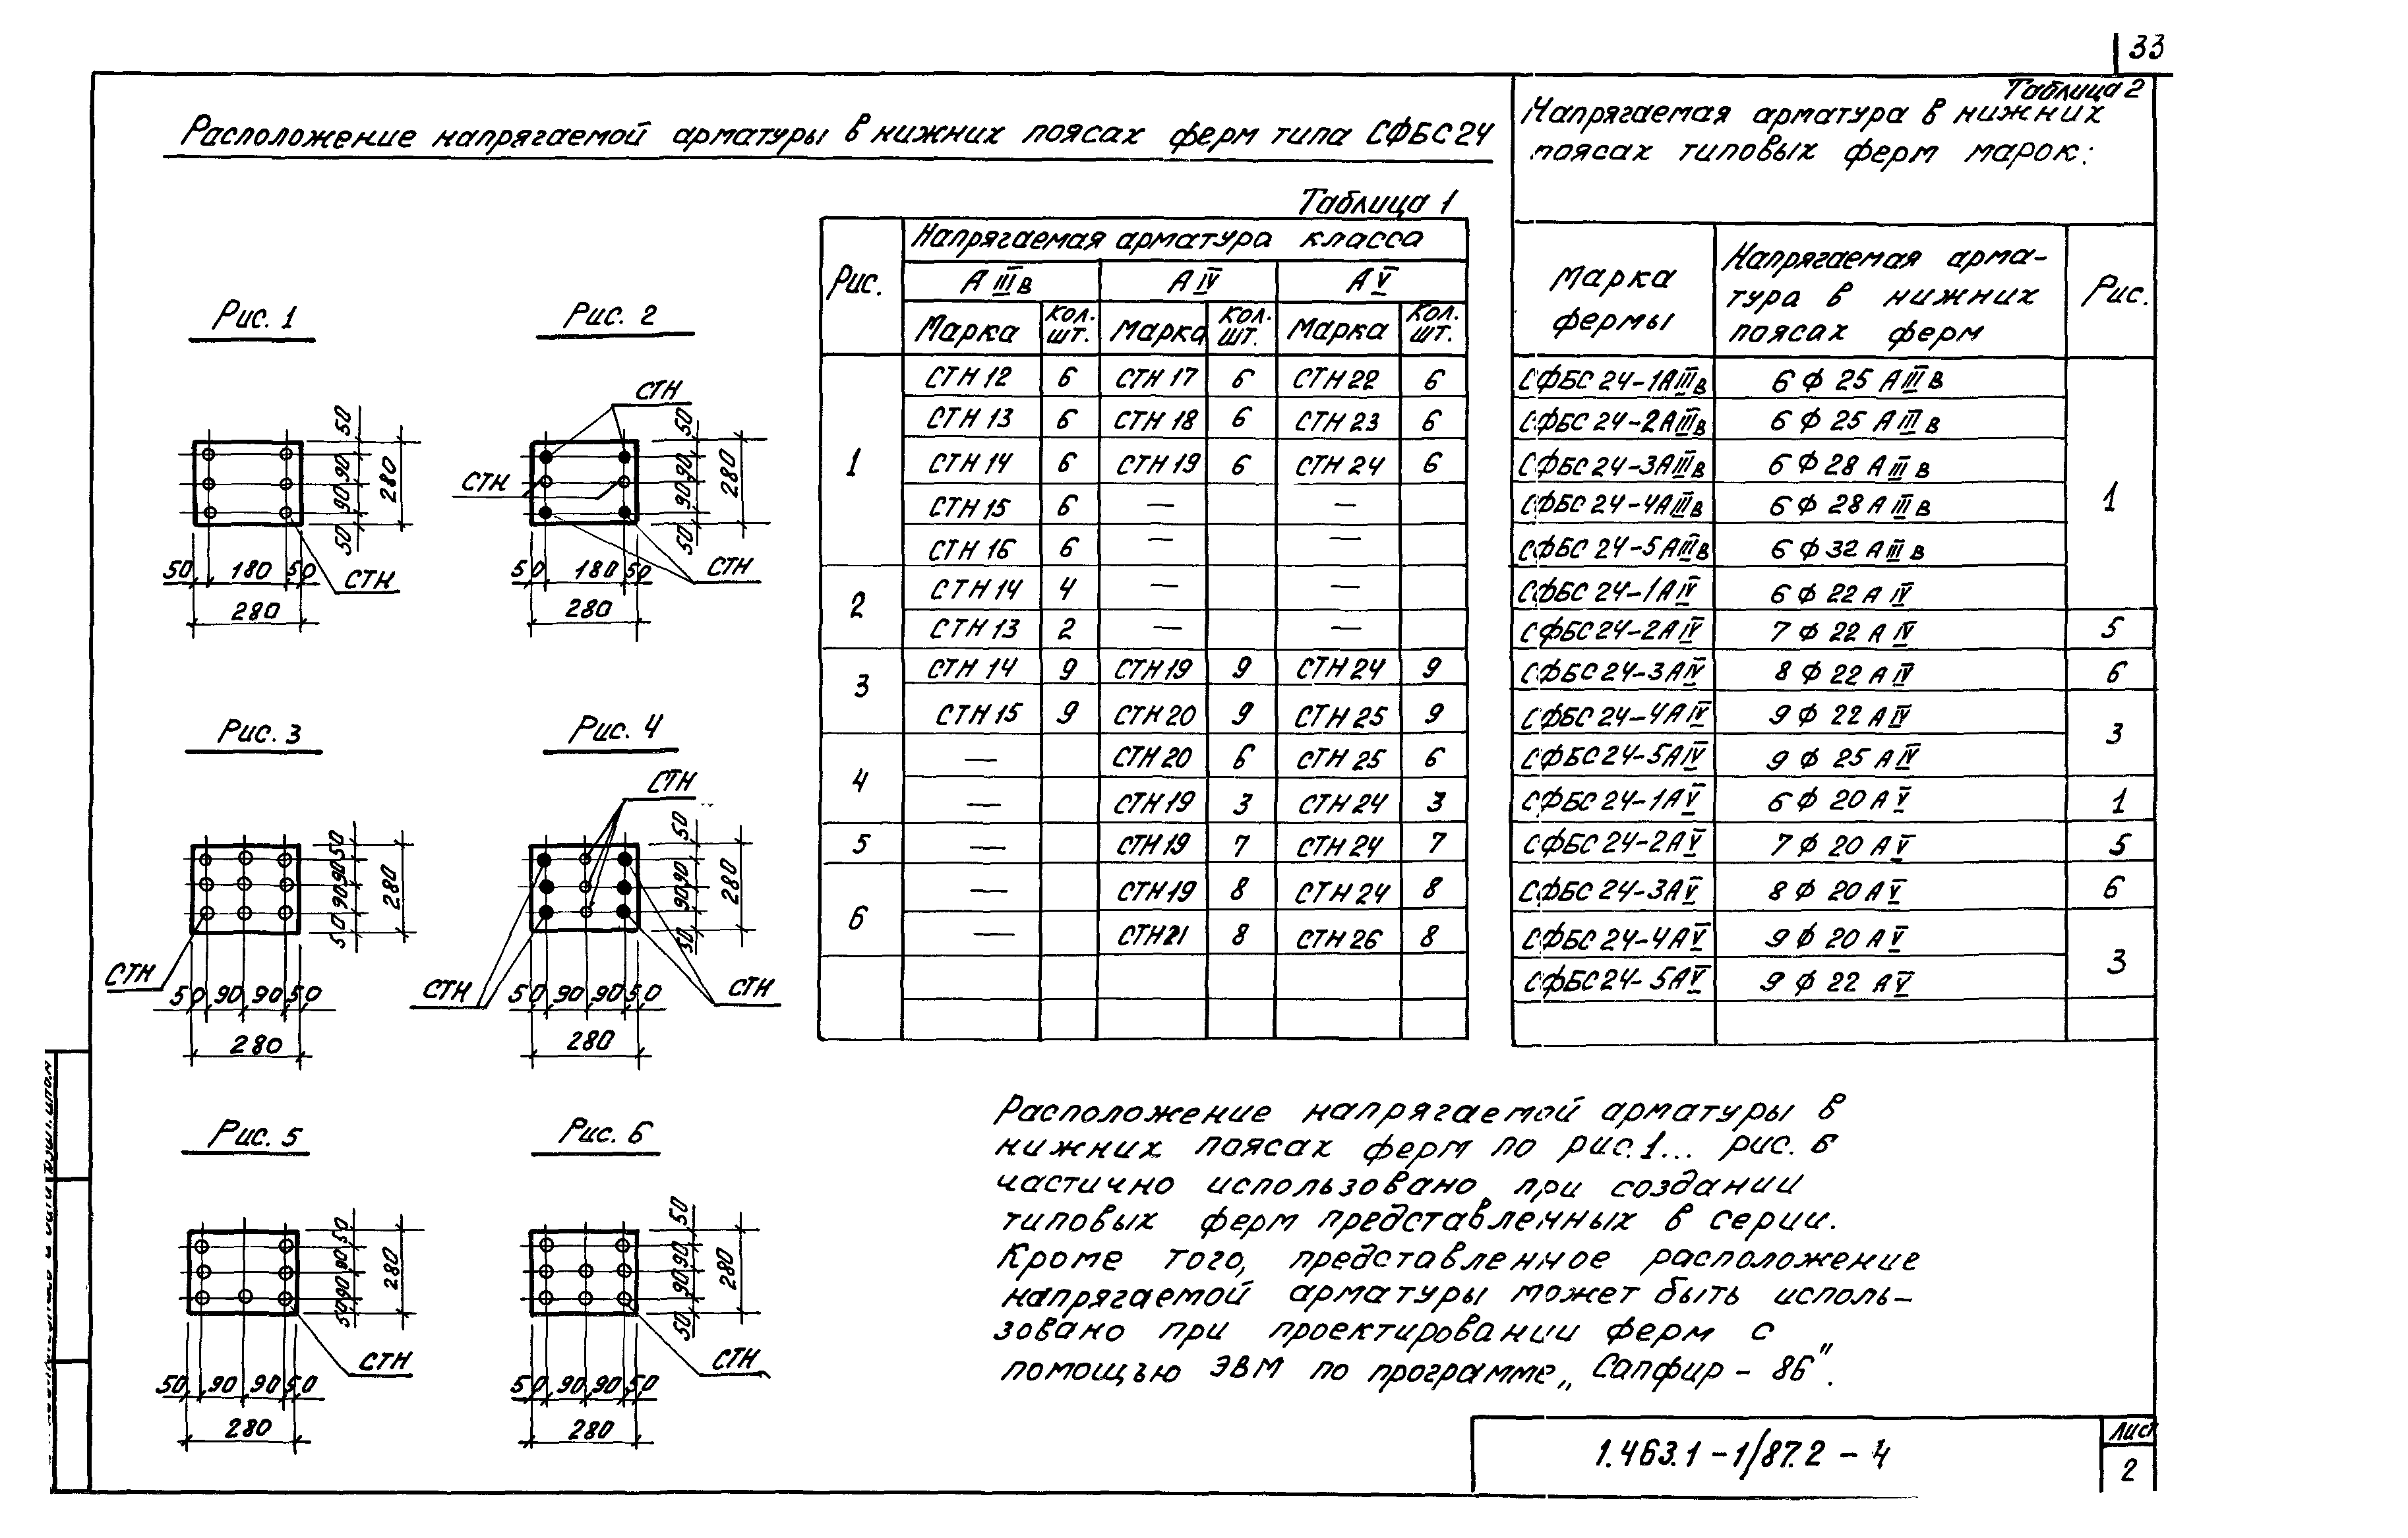 33
Расположение напрягаемой арматуры в нижних поясах ферм типа СФБС24
Таблица 2
Напрягаемая арматура в нижних
поясах типовых ферм марок:
Рис. 1
50 90 90 50
280
50 180 50
280
СТН
Рис. 2
СТН
СТН
СТН
50 90 90 50
280
50 180 50
280
Рис. 3
СТН
50 90 90 50
280
50 90 90 50
280
Рис. 4
СТН
СТН
СТН
50 90 90 50
280
50 90 90 50
280
Рис. 5
СТН
50 90 90 50
280
50 90 90 50
280
Рис. 6
СТН
50 90 90 50
280
50 90 90 50
280
Таблица 1
Рис. Напрягаемая арматура класса
А IIIв А IV А V
Марка Кол. шт. Марка Кол. шт. Марка Кол. шт.
1 СТН 12 6 СТН 17 6 СТН 22 6
СТН 13 6 СТН 18 6 СТН 23 6
СТН 14 6 СТН 19 6 СТН 24 6
СТН 15 6 — —
СТН 16 6 — —
2 СТН 14 4 — —
СТН 13 2 — —
3 СТН 14 9 СТН 19 9 СТН 24 9
СТН 15 9 СТН 20 9 СТН 25 9
4 — СТН 20 6 СТН 25 6
— СТН 19 3 СТН 24 3
5 — СТН 19 7 СТН 24 7
6 — СТН 19 8 СТН 24 8
— СТН 21 8 СТН 26 8
Марка фермы Напрягаемая арма-
тура в нижних
поясах ферм Рис.
СФБС 24-1АIIIв 6 ф 25 А III в 1
СФБС 24-2АIIIв 6 ф 25 А III в
СФБС 24-3АIIIв 6 ф 28 А III в
СФБС 24-4АIIIв 6 ф 28 А III в
СФБС 24-5АIIIв 6 ф 32 А III в
СФБС 24-1АIV 6 ф 22 А IV
СФБС 24-2АIV 7 ф 22 А IV 5
СФБС 24-3АIV 8 ф 22 А IV 6
СФБС 24-4АIV 9 ф 22 А IV 3
СФБС 24-5АIV 9 ф 25 А IV
СФБС 24-1АV 6 ф 20 А V 1
СФБС 24-2АV 7 ф 20 А V 5
СФБС 24-3АV 8 ф 20 А V 6
СФБС 24-4АV 9 ф 20 А V 3
СФБС 24-5АV 9 ф 22 А V
Расположение напрягаемой арматуры в
нижних поясах ферм по рис.1... рис. 6
частично использовано при создании
типовых ферм представленных в серии.
Кроме того, представленное расположение
напрягаемой арматуры может быть исполь-
зовано при проектировании ферм с
помощью ЭВМ по программе „Сапфир - 86".
1.463.1-1/87.2 - 4
Лист
2